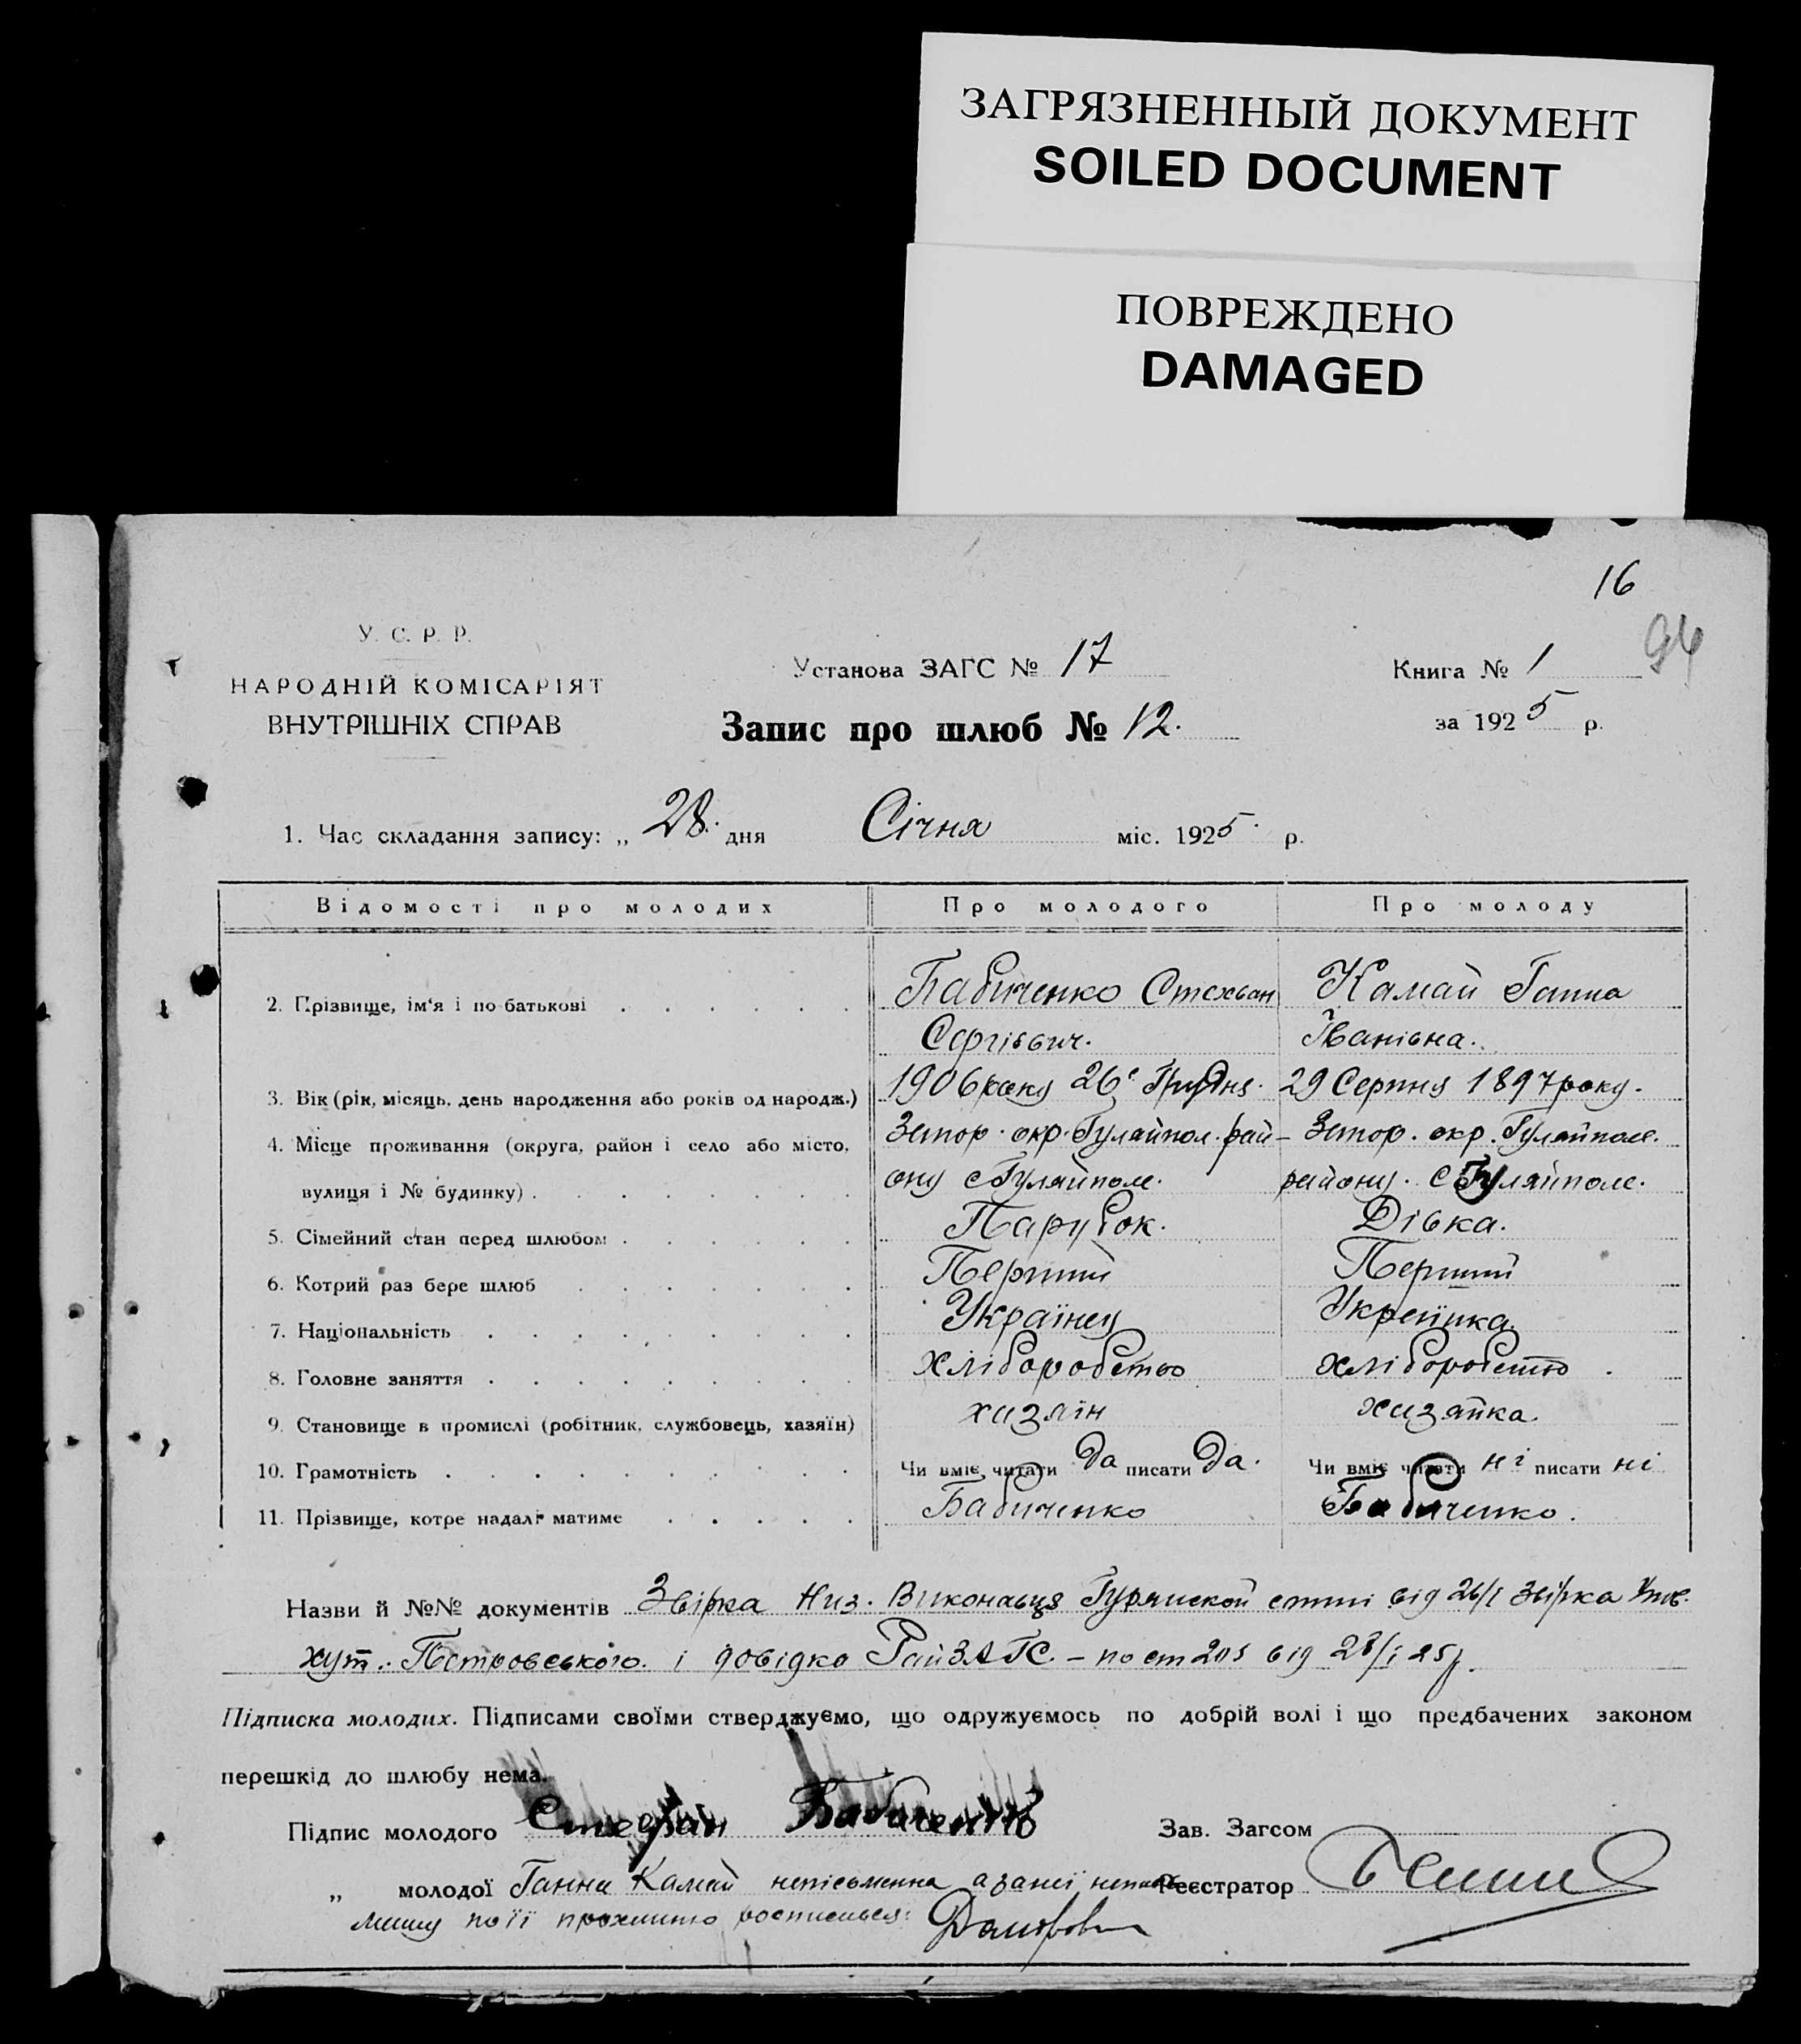 ЗАГРЯЗНЕННЫЙ ДОКУМЕНТ
SOILED DOCUMENT
ПОВРЕЖДЕНО
DAMAGED
16
94
У. С. Р. Р.
НАРОДНІЙ КОМІСАРІЯТ
ВНУТРІШНІХ СПРАВ
Установа ЗАГС № 17
Книга № 1
Запис про шлюб № 12.
за 1925 р.
1. Час складання запису: „ 28. дня Січня міс. 1925 р.
Відомості про молодих Про молодого Про молоду
2. Прізвище, ім'я і по батькові Бабиченко Степан Камай Ганна
Сергієвич. Іванівна.
3. Вік (рік, місяць, день народження або років од народж.) 1906 року 26 Грудня. 29 Серпня 1897 року.
4. Місце проживання (округа, район і село або місто, Запор. окр. Гуляйпол. рай- Запор. окр. Гуляйполе.
вулиця і № будинку) ону с Гуляйполе. району. с Гуляйполе.
5. Сімейний стан перед шлюбом Парубок. Дівка.
6. Котрий раз бере шлюб Перший Перший
7. Національність Українец Українка.
8. Головне заняття хліборобство хліборобство.
9. Становище в промислі (робітник, службовець, хазяїн) хазяїн хазяйка.
10. Грамотність Чи вміє читати да писати да. Чи вміє читати ні писати ні
11. Прізвище, котре надалі матиме Бабиченко Бабиченко.
Назви й №№ документів Звірка Низ. Виконавця від 26/I Звірка
хут. Петровського і довідко РайЗАГС - по від 28/I 25р.
Підписка молодих. Підписами своїми стверджуємо, що одружуємось по добрій волі і що предбачених законом
перешкід до шлюбу нема.
Підпис молодого Степан Бабиченко Зав. Загсом
„ молодої Ганна Камай неписьменна а за неї Реєстратор
по її росписався: